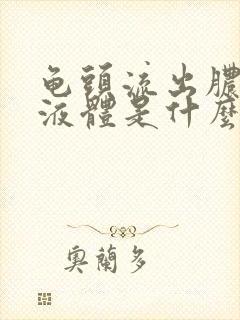 龟頭流出膿
液體是什麼
奧蘭多